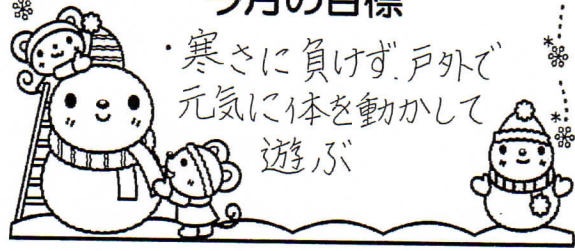 月の目標
・寒さに負けず、戸外で
元気に体を動かして
遊ぶ